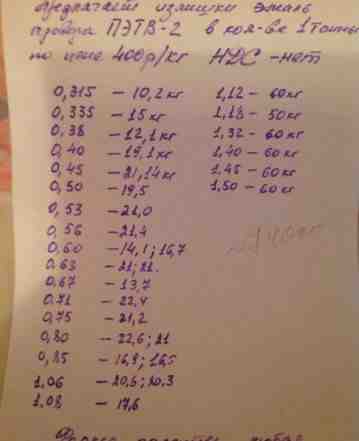 предлагает излишки эмаль
провода ПЭТВ-2 в кол-ве 1 тонны
по цене 400р/кг НДС-нет
0,315 - 10,2 кг 1,12 - 60кг
0,335 - 15 кг 1,18 - 50кг
0,38 - 12,1 кг 1,32 - 60кг
0,40 - 19,1 кг 1,40 - 60кг
0,45 - 21,14кг 1,45 - 60кг
0,50 - 19,5 1,50 - 60кг
0,53 - 21,0
0,56 - 21,4
0,60 - 14,1; 16,7
0,63 - 21; 21.
0,67 - 13,7
0,71 - 22,4
0,75 - 21,2
0,80 - 22,6; 21
0,85 - 16,9; 16,5
1.06 - 20,6; 20.3
1.08 - 17,6